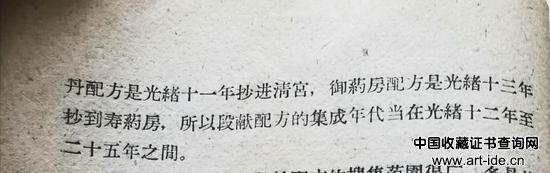 丹配方是光緒十一年抄进清宮，御葯房配方是光緒十三年
抄到寿葯房，所以段献配方的集成年代当在光緒十二年至
二十五年之間。
的搜集范圍很广
中国收藏证书查询网
www.art-ide.cn